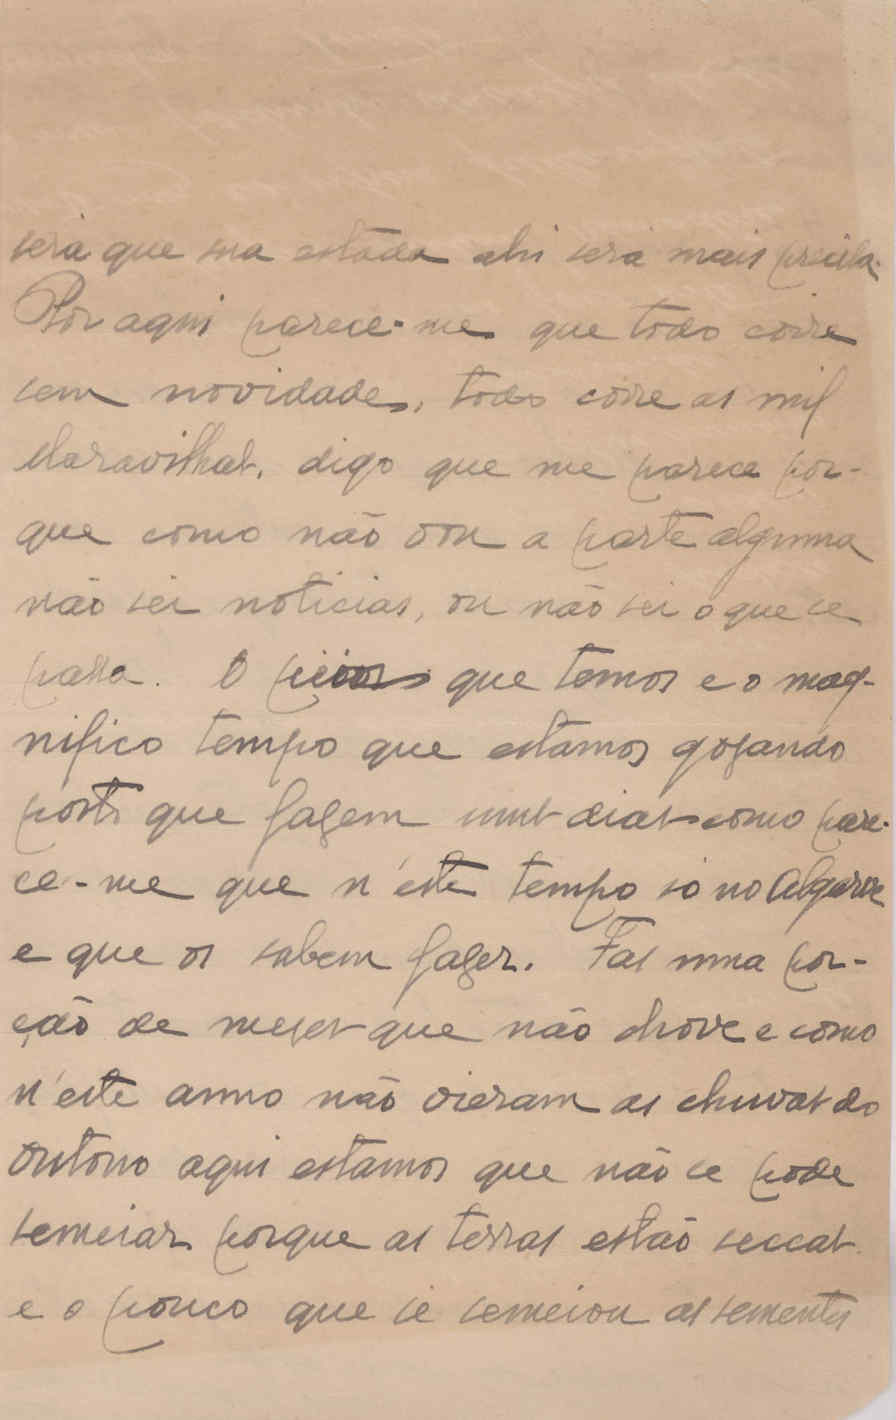 será que sua estáda ahi será mais precisa.
Por aqui parece-me que todo corre
sem novidades, todo corre as mil
Maravilhas, digo que me parece por-
que como não vou a parte alguma
não sei noticias, ou não sei o que se
passa. O que temos e o mag-
nifico tempo que estamos gosando
posto que fasem uns dias como pare-
ce-me que n'este tempo só no Algarve
e que os sabem faser. Fas uma por-
ção de meses que não chove e como
n'este anno não vieram as chuvas do
Outono aqui estamos que não se pode
semeiar porque as terras estão seccas
e o pouco que se semeiou as sementes